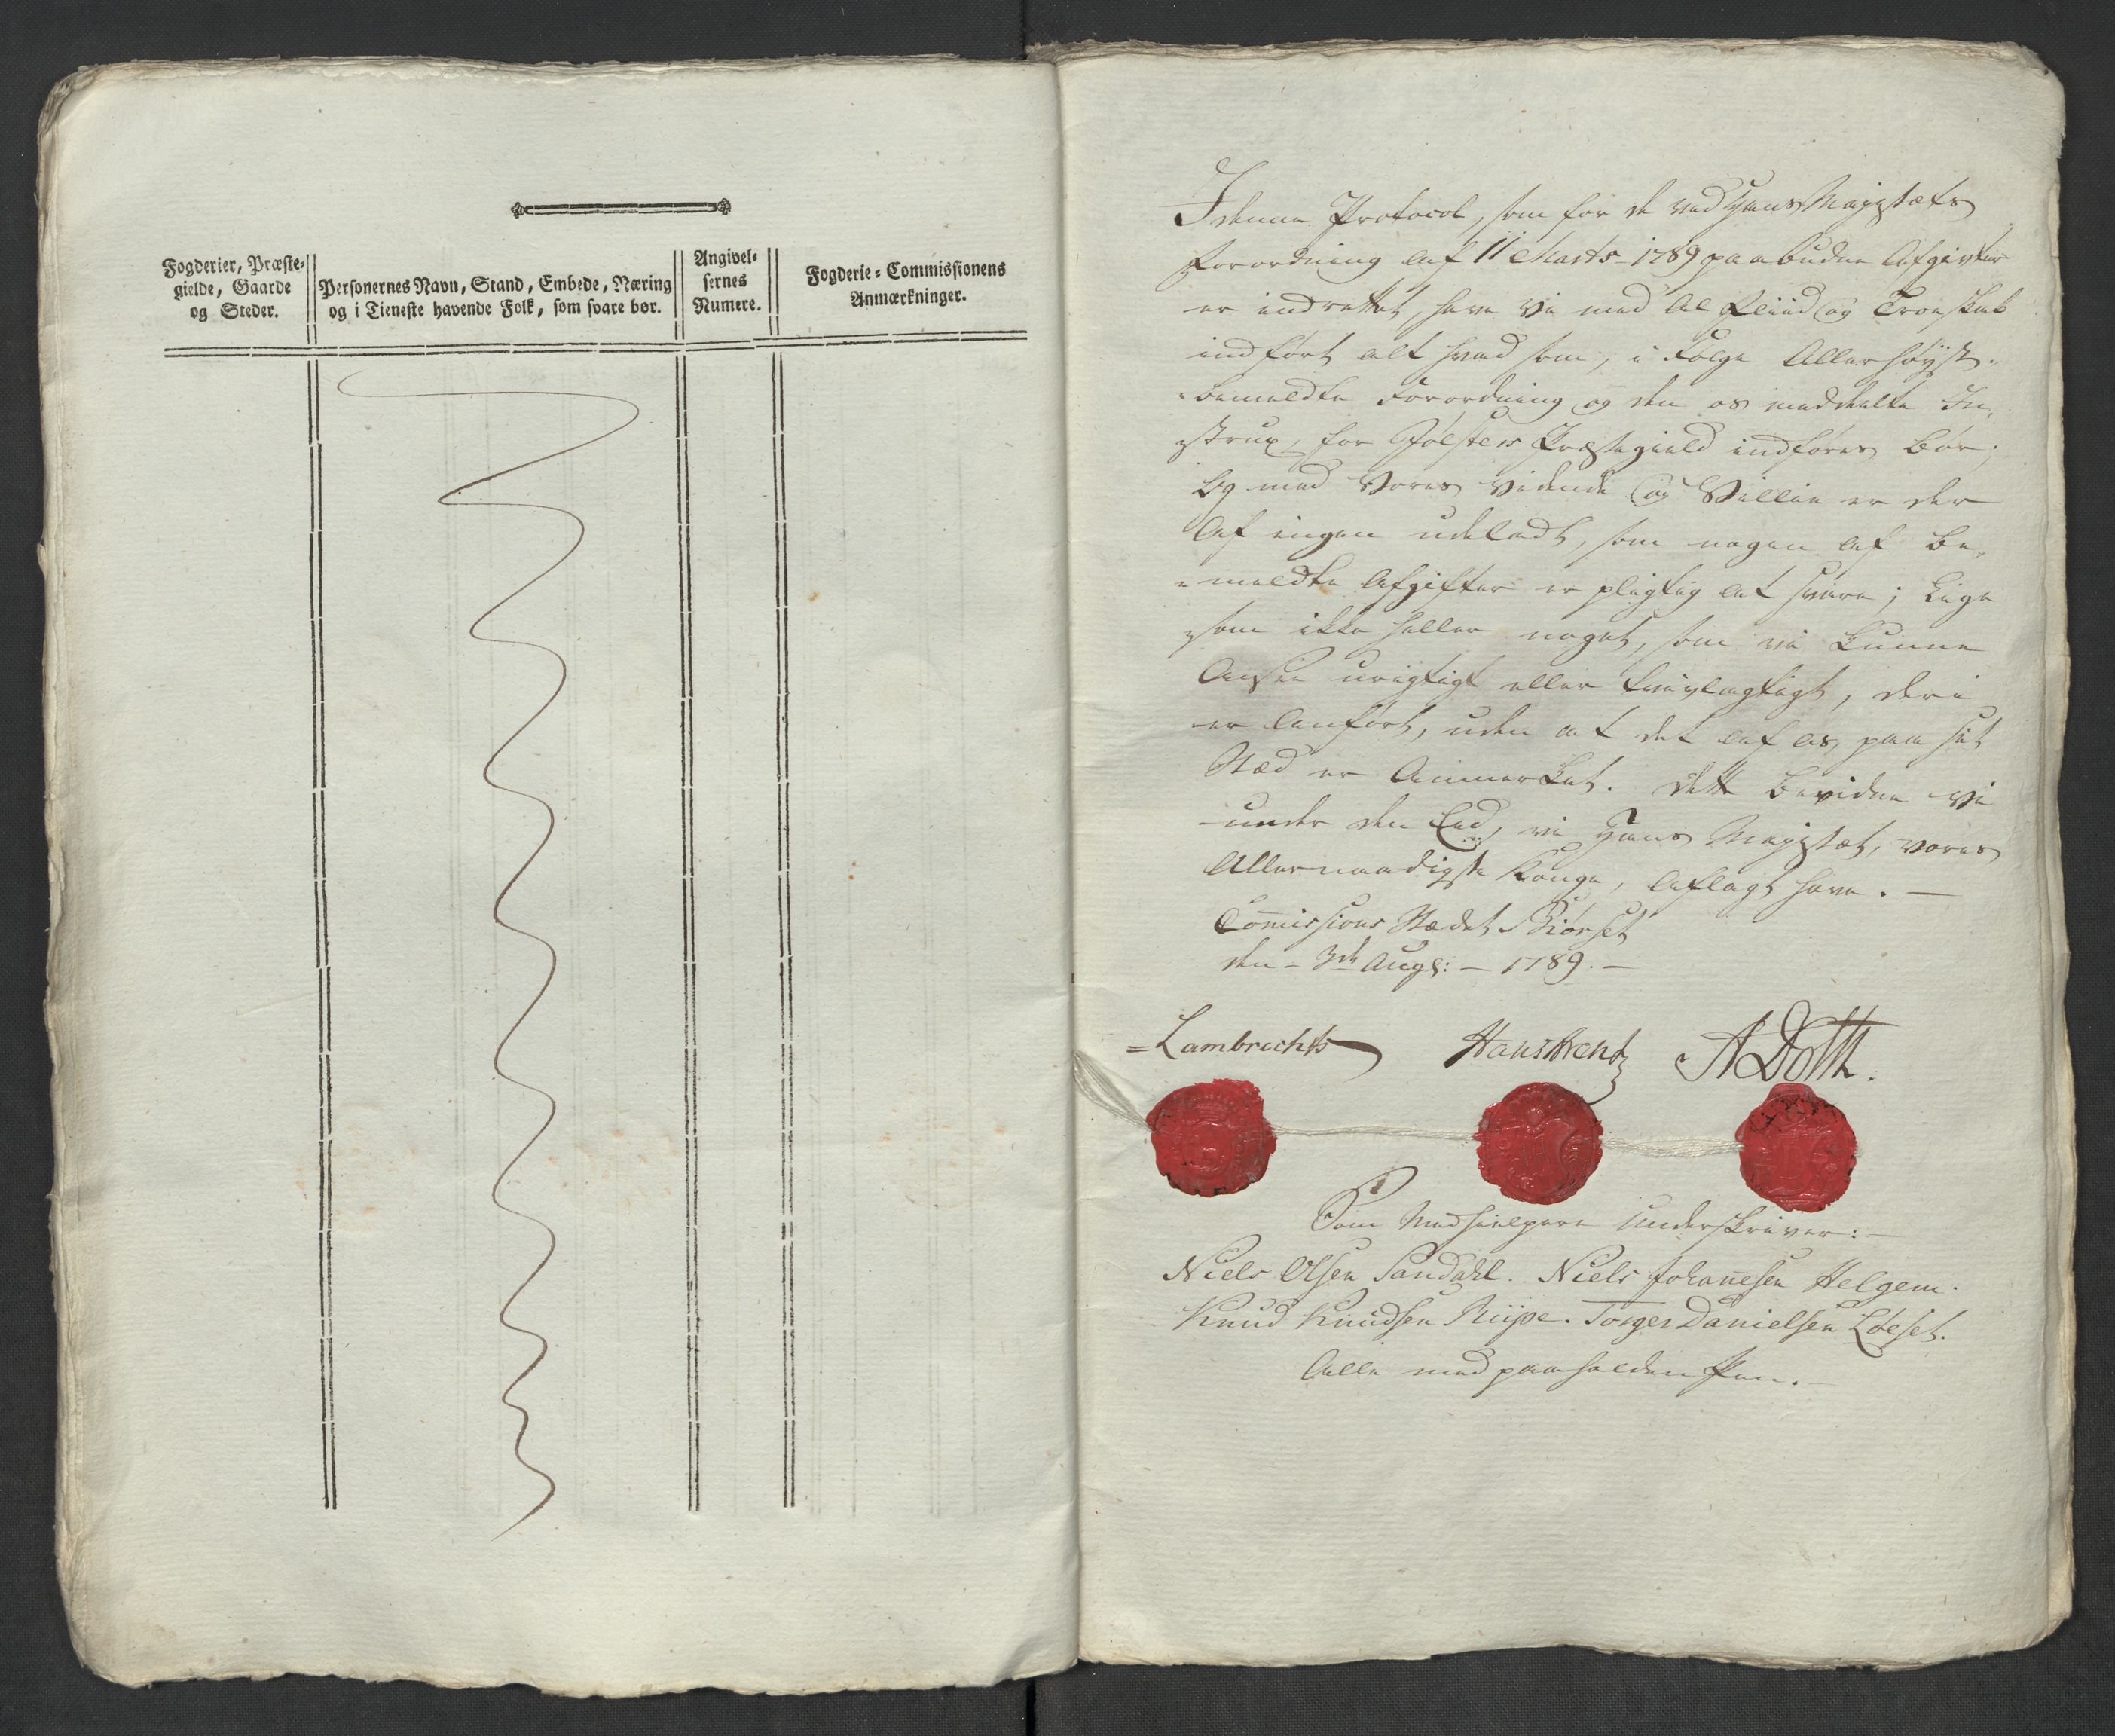 Fogderier, Præste-
gielde, Gaarde
og Steder.
Personernes Navn, Stand, Embede, Næring
og i Tieneste havende Folk, som svare bør.
Angivel-
sernes
Numere.
Fogderie-Commissionens
Anmærkninger.
I denne Protocol, som for de ved Hans Mayestæts
Forordning af 11 Marts 1789 paabudne Afgivter
er indrettet, have Vi med al Fliid og Troeskab
indført alt hvad som, i Følge Allerhøyst-
bemeldte Forordning og den os meddeelte In-
strux, for Jølster Præstegield indføres bør;
Og med Vores Vidende og Villie er der
af ingen udeladt, som nogen af be-
meldte Afgifter er pligtig at svare; Lige
som ikke heller noget, som vi kunne
Ansee urigtigt eller tvivlagtigt, deri
er anført, uden at det af os paa sit
Stæd er Anmerket. Dette bevidne Vi
under den Eed, vi Hans Mayestæt, vores
Allernaadigste Konge, aflagt have. —
Commissions Stædet Skiørset
den 3de Augs: — 1789. —
Lambrechts Hans Arentz A Dotth.
Som Medhielpere Underskriver: —
Niels Olsen Sandahl. Niels Johannesen Helgem.
Knud Knudsen Riipe. Torger Danielsen Løeset.
Alle med paaholden Pen. —